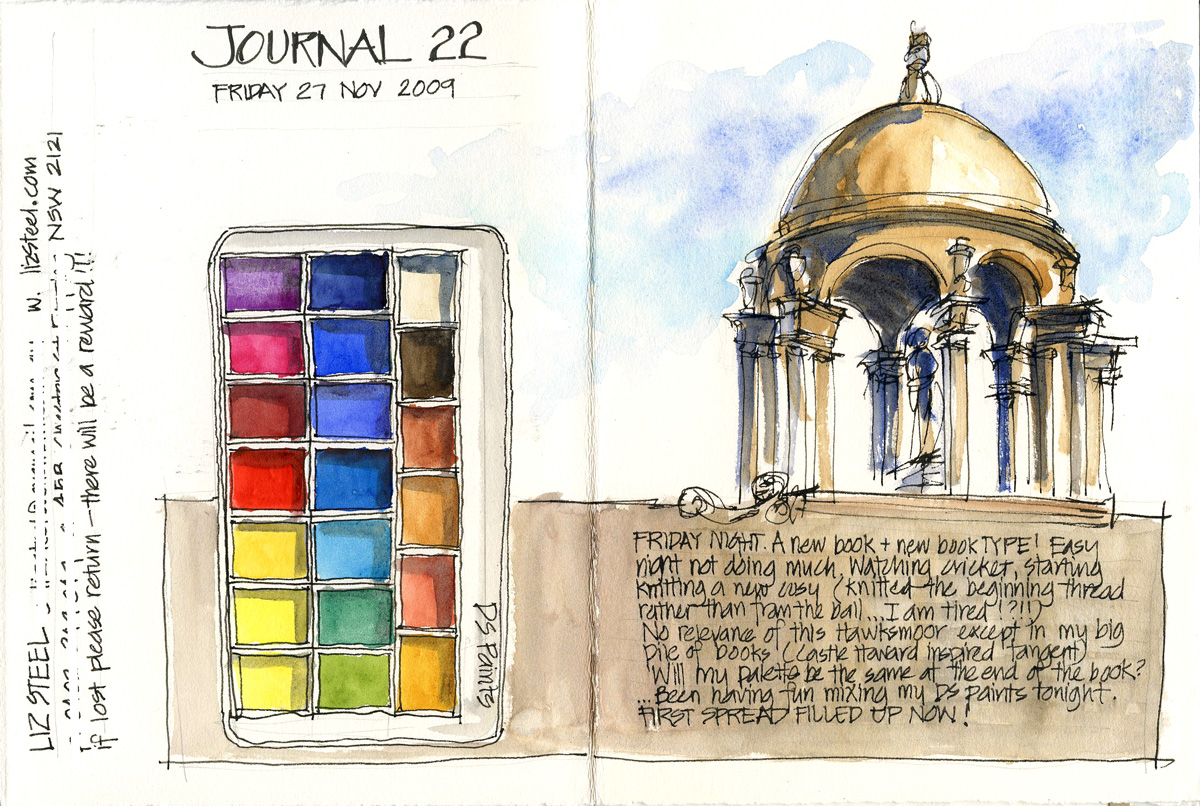 JOURNAL 22
FRIDAY 27 NOV 2009
LIZ STEEL
W. lizsteel.com
NSW 2121
if lost please return - there will be a reward!!!
DS Paints
FRIDAY NIGHT. A new book + new book TYPE! Easy
night not doing much, watching cricket, starting
knitting a new cosy (knitted the beginning thread
rather than from the ball... I am tired!?!!)
No relevance of this Hawksmoor except in my big
pile of books (Castle Howard inspired tangent)
Will my palette be the same at the end of the book?
...Been having fun mixing my DS paints tonight.
FIRST SPREAD FILLED UP NOW!